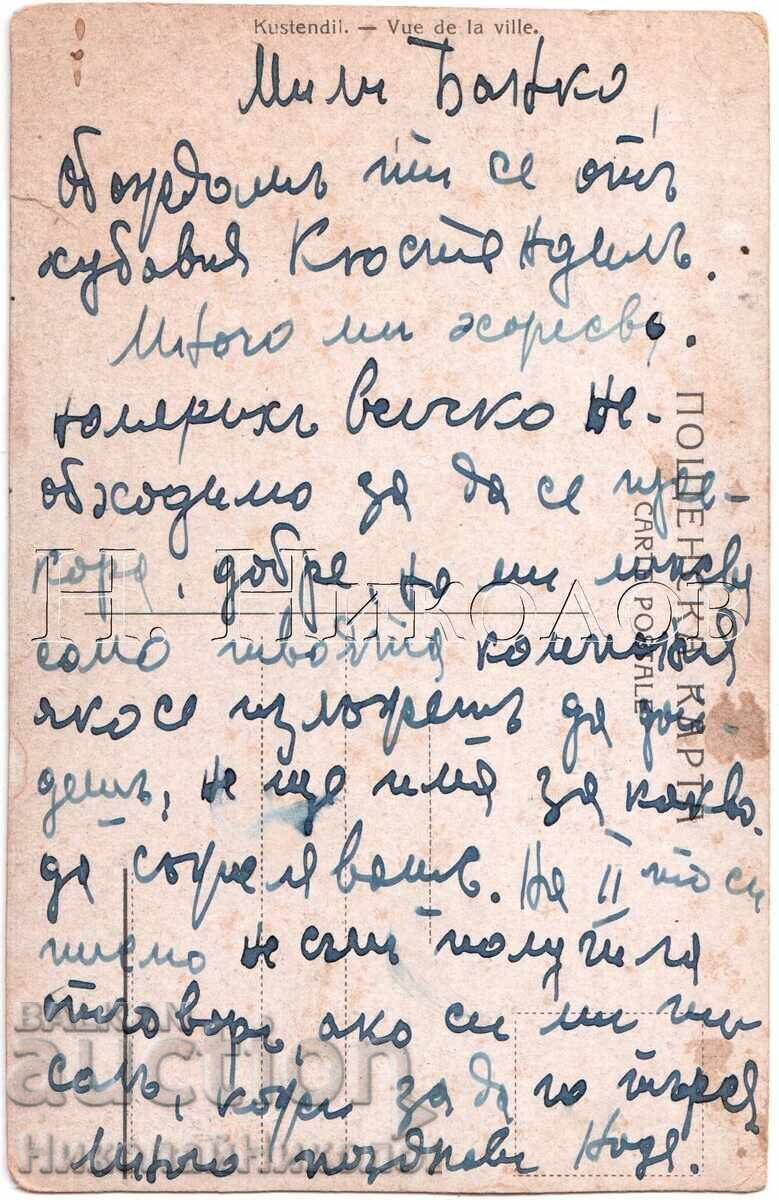 Kustendil. — Vue de la ville.
Мили Банко,
обаждамъ ти се отъ
хубавия Кюстендилъ.
Много ми харесва.
намерихъ всичко не-
обходимо за да се изка-
кара добре, но ми липсва
само твоята компания
яко се излъжешъ да дой-
дешъ, не ще има за какво
да съжелявашъ. На II то си
писмо не съмъ получила
отговоръ, ако си ми пи-
салъ, кажи за да го търся
Много поздрави Надя.
ПОЩЕНСКА КАРТА
CARTE POSTALE
Н. Николов
BALKAN
auction
Николай Николов